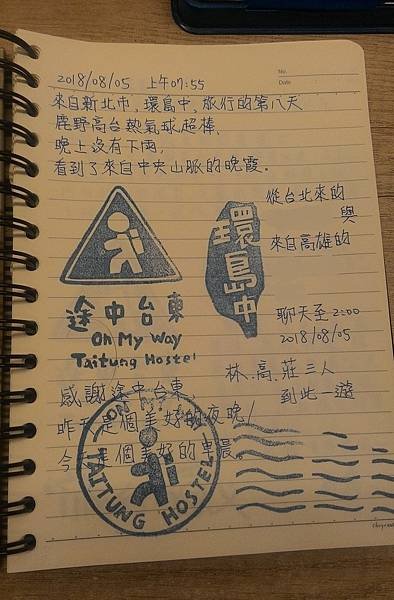 No.
Date
2018/08/05 上午07:55
來自新北市,環島中,旅行的第八天
鹿野高台熱氣球超棒,
晚上沒有下雨,
看到了來自中央山脈的晚霞.
從台北來的
與
來自高雄的
環島中
聊天至2:00
2018/08/05
途中台東
On My Way
Taitung Hostel
林.高.莊三人
到此一遊
感謝途中台東
昨天是個美好的夜晚/
今天是個美好的早晨.
TAITUNG HOSTEL